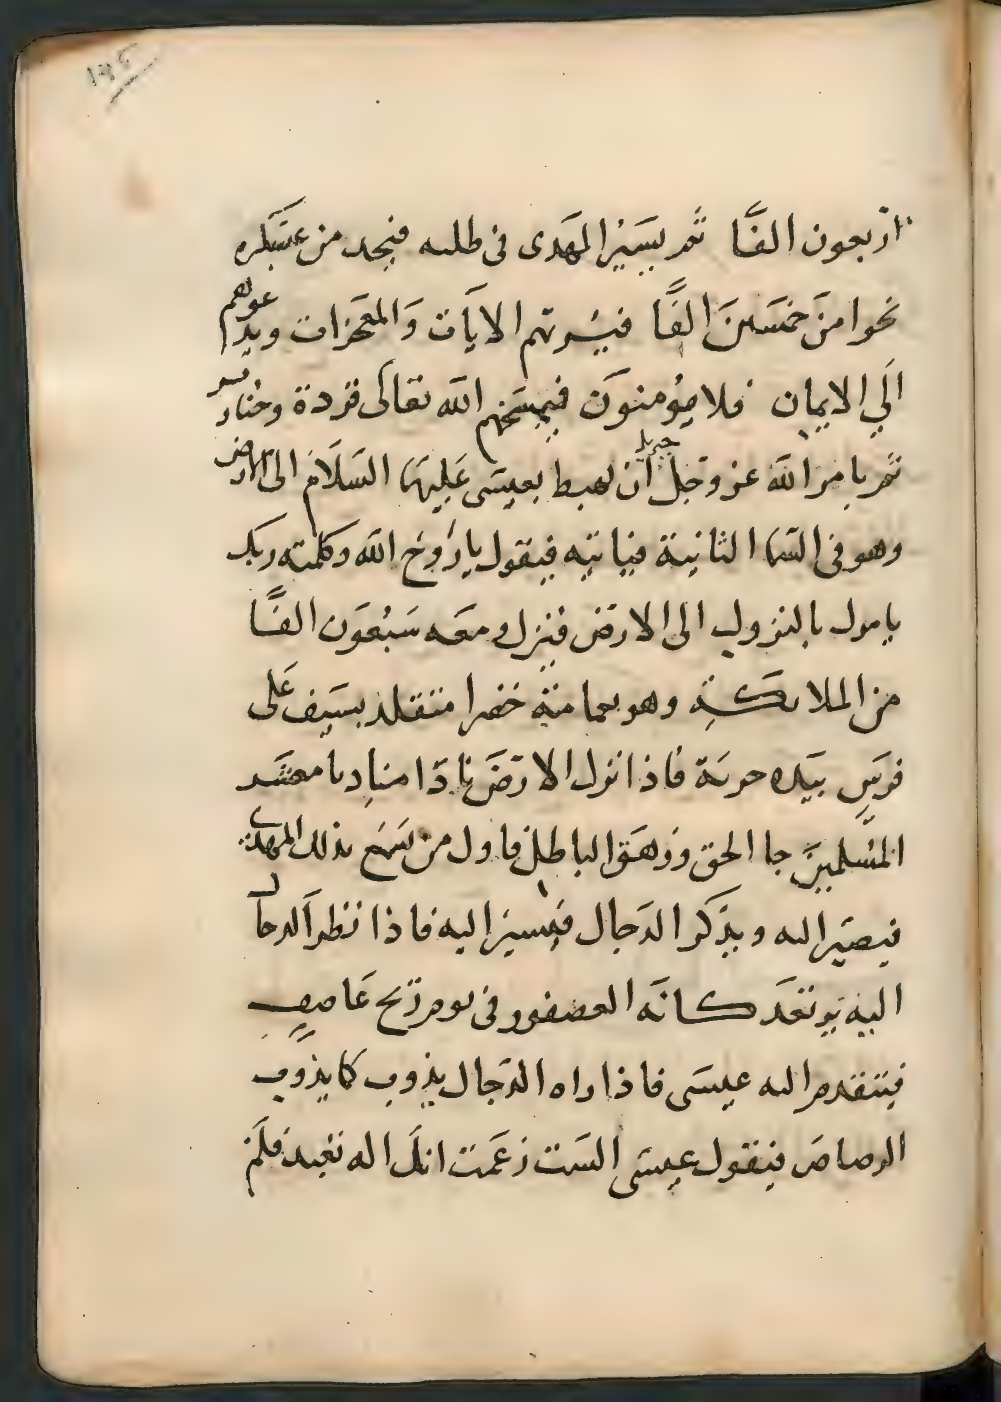 اربعون الفًا ثم يسير المهدى فى طلبه فيجد من عسكره
نحوا من خمسين الفًا فيريهم الايات والمعجزات ويدعوهم
الى الايمان فلا يؤمنون فيمسخهم الله تعالى قردة وخنازير
ثم يامر الله عز وجل جبريل ان يهبط بعيسى عليهما السلام الى الارض
وهو فى السما الثانية فياتيه فيقول يا روح الله وكلمته ربك
يامرك بالنزول الى الارض فينزل ومعه سبعون الفًا
من الملائكة وهو بعمامة خضرا متقلد بسيف على
فرس بيده حربة فاذا نزل الارض نادا مناد يا معشر
المسلمين جا الحق وزهق الباطل فاول من سمع بذلك المهدى
فيصير اليه ويذكر الدجال فيسير اليه فاذا نظر الدجال
اليه يرتعد كانه العصفور فى يوم ريح عاصف
فيتقدم اليه عيسى فاذا راه الدجال يذوب كما يذوب
الرصاص فيقول عيسى الست زعمت انك اله تعبد فلم